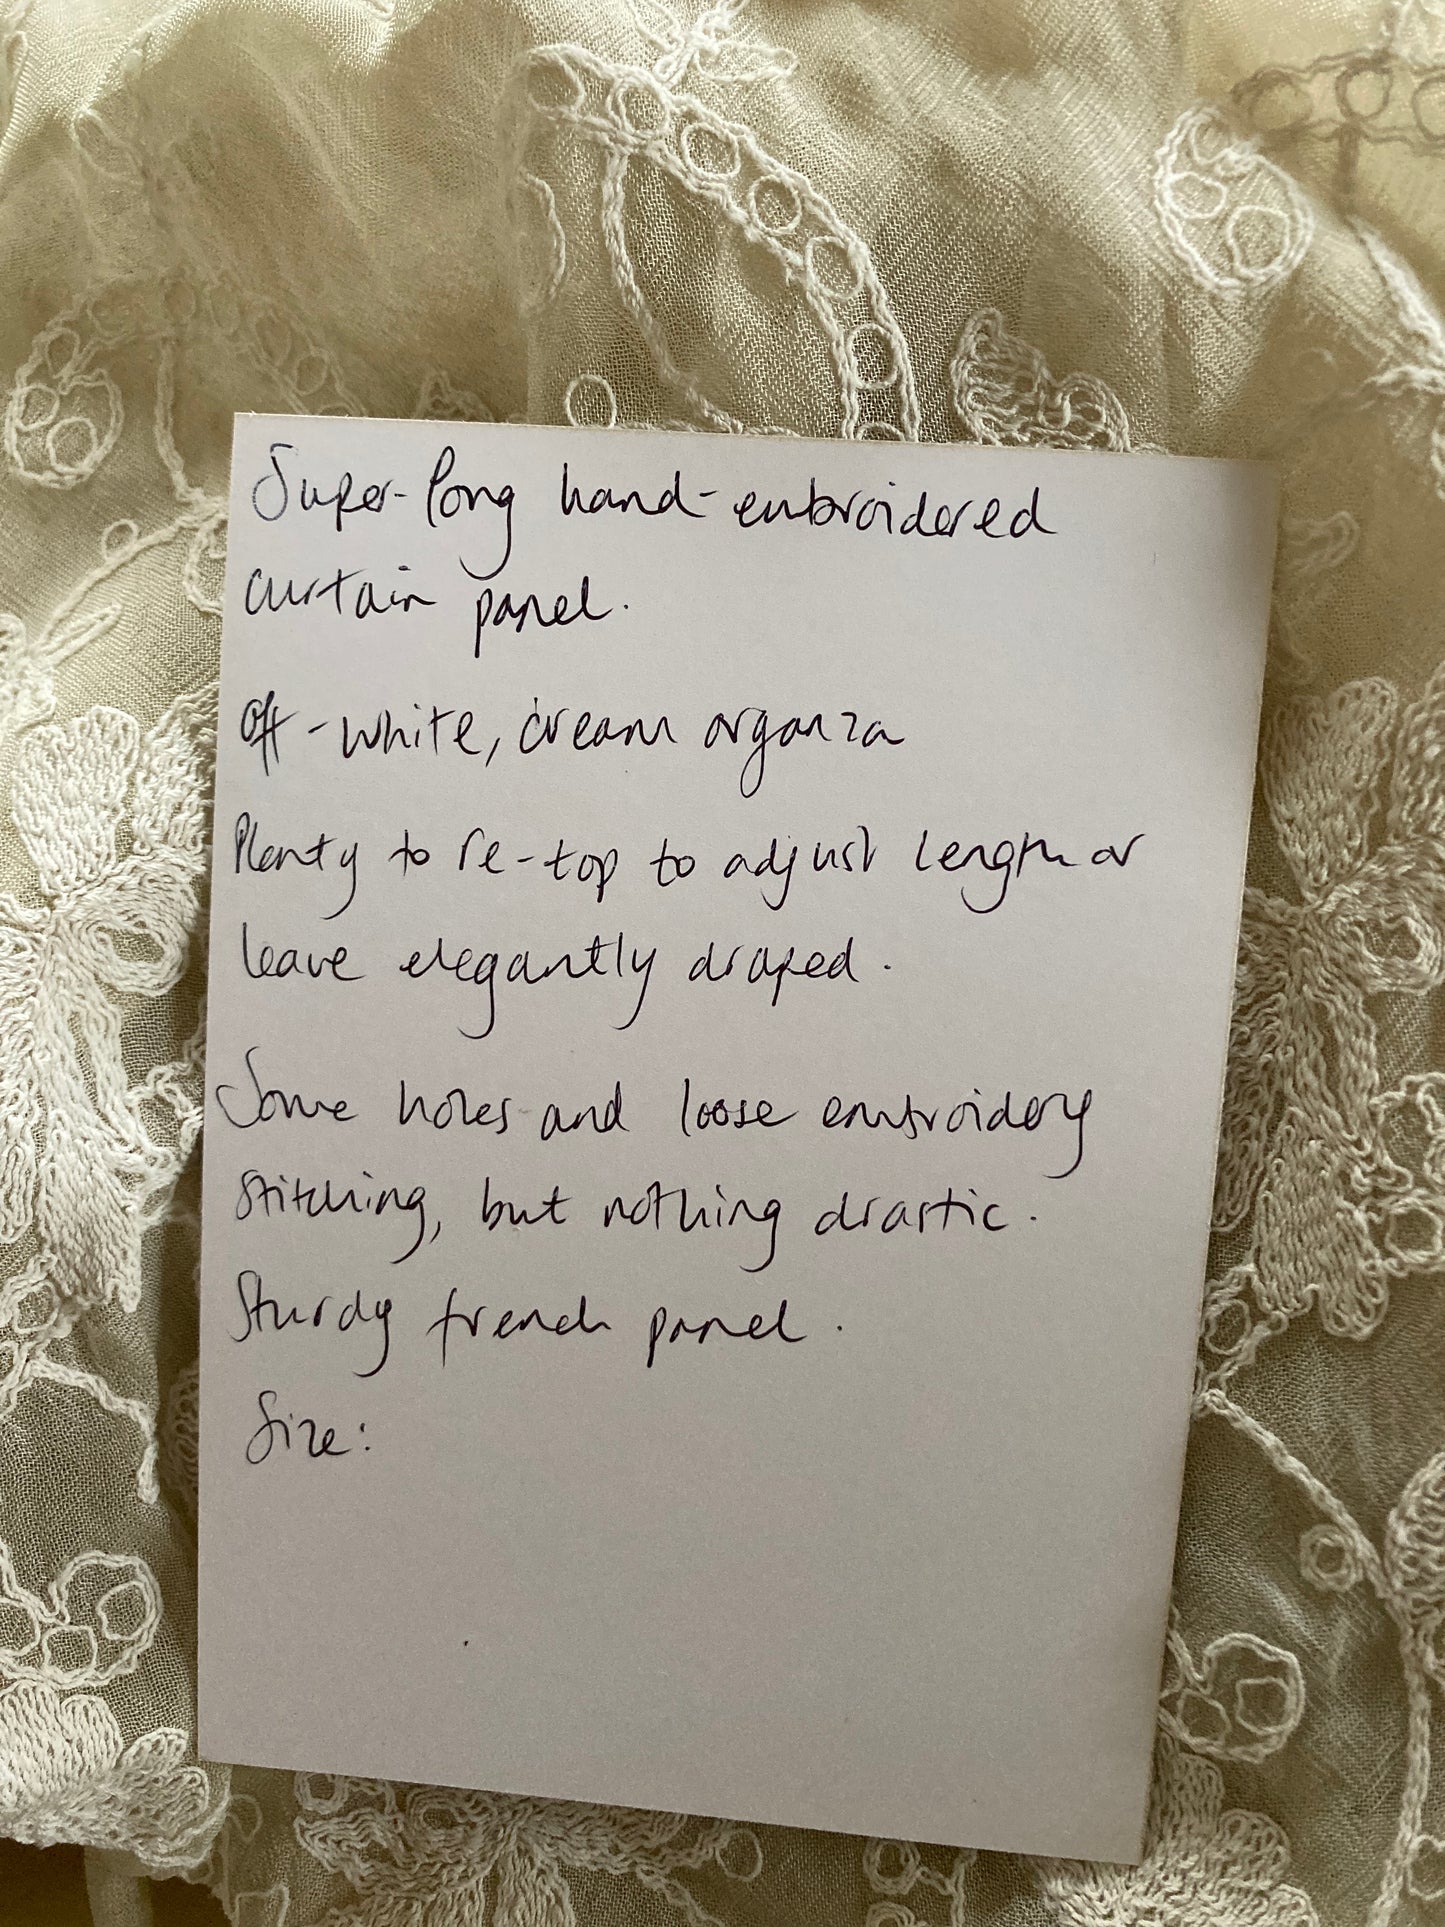 Super-long hand-embroidered
curtain panel.
Off-white, cream organza
Plenty to re-top to adjust length or
leave elegantly draped.
Some holes and loose embroidery
stitching, but nothing drastic.
Sturdy french panel.
Size: